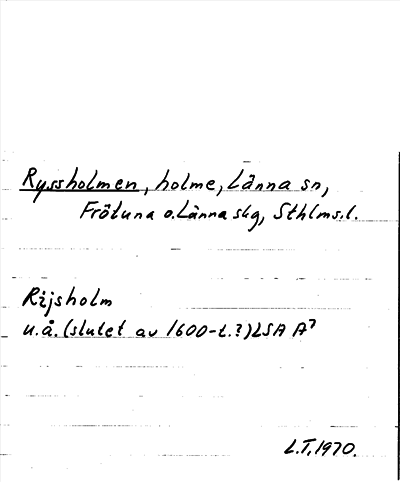 Ryssholmen, holme, Länna sn,
Frötuna o. Länna skg, Sthlms. l.
Rijsholm
u.å. (slutet av 1600-t.?) LSA A7
L.T. 1970.